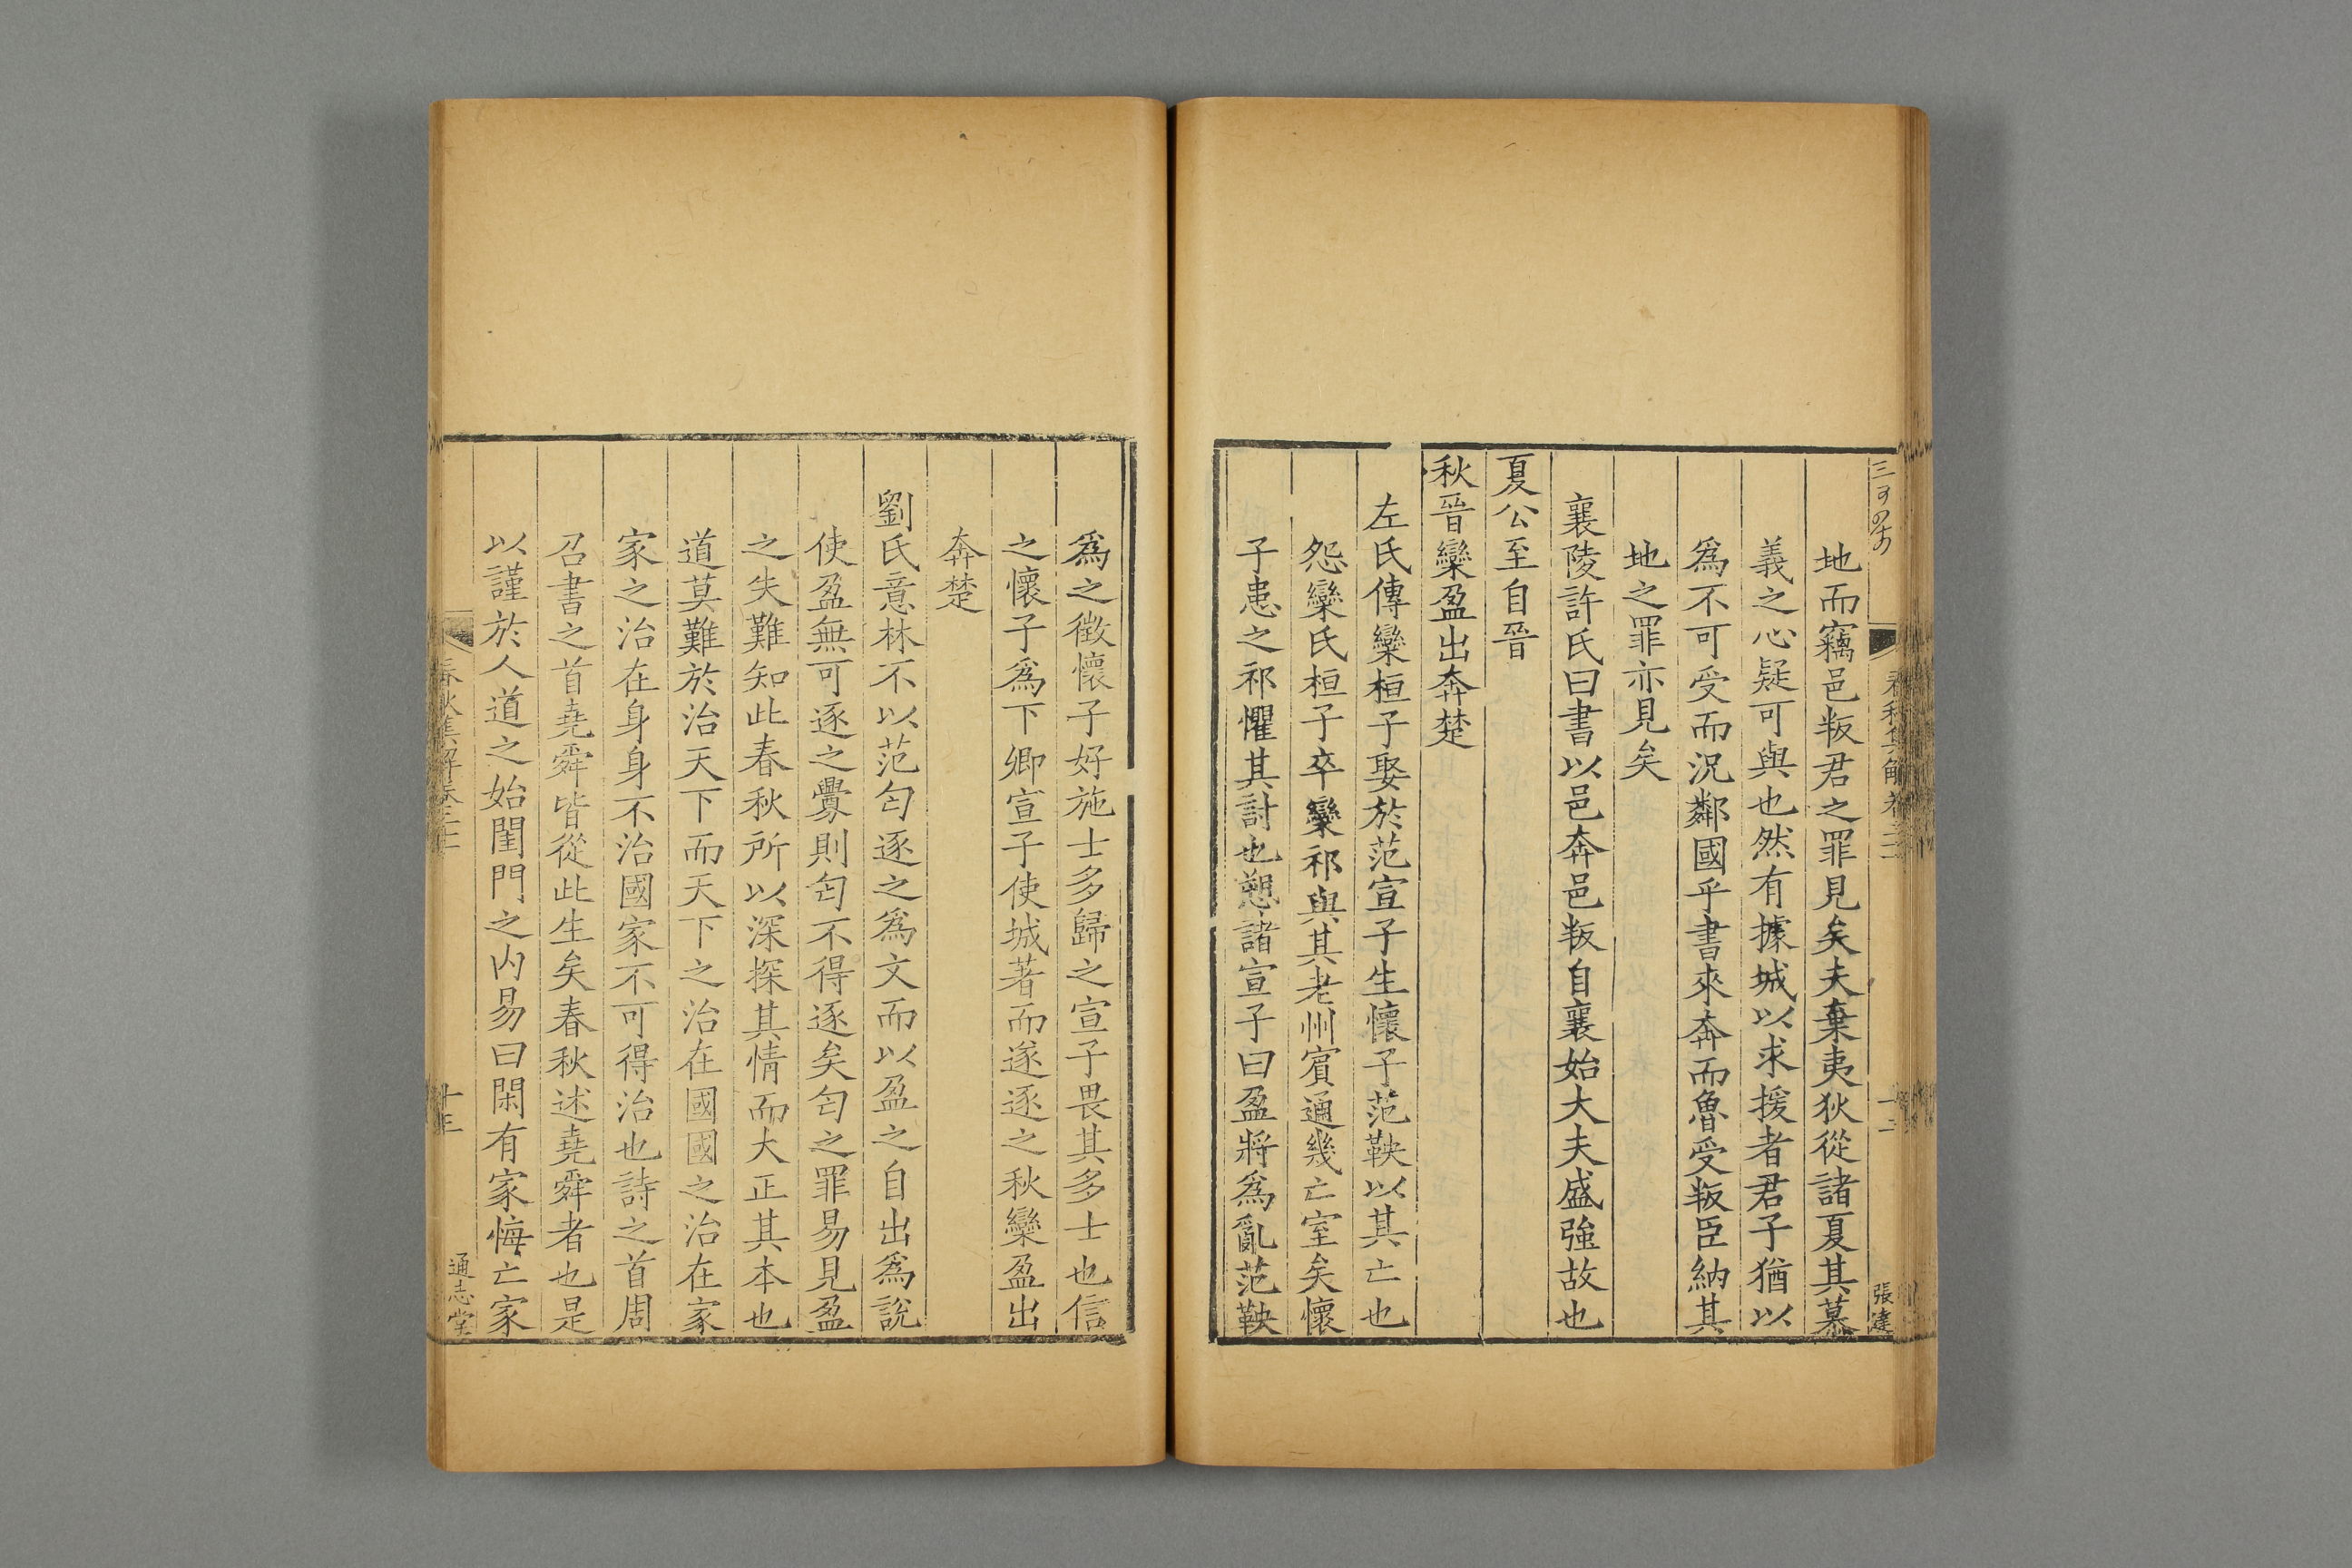 地而竊邑叛君之罪見矣夫棄夷狄從諸夏其慕
義之心疑可與也然有據城以求援者君子猶以
爲不可受而況鄰國乎書來奔而魯受叛臣納其
地之罪亦見矣
襄陵許氏曰書以邑奔邑叛自襄始大夫盛強故也
夏公至自晉
秋晉欒盈出奔楚
左氏傳欒桓子娶於范宣子生懷子范鞅以其亡也
怨欒氏桓子卒欒祁與其老州賓通幾亡室矣懷
子患之祁懼其討也愬諸宣子曰盈將爲亂范鞅
爲之徵懷子好施士多歸之宣子畏其多士也信
之懷子爲下卿宣子使城著而遂逐之秋欒盈出
奔楚
劉氏意林不以范匄逐之爲文而以盈之自出爲說
使盈無可逐之釁則匄不得逐矣匄之罪易見盈
之失難知此春秋所以深探其情而大正其本也
道莫難於治天下而天下之治在國國之治在家
家之治在身身不治國家不可得治也詩之首周
召書之首堯舜皆從此生矣春秋述堯舜者也是
以謹於人道之始閨門之內易曰閑有家悔亡家
春秋集解卷二十
通志堂
張達